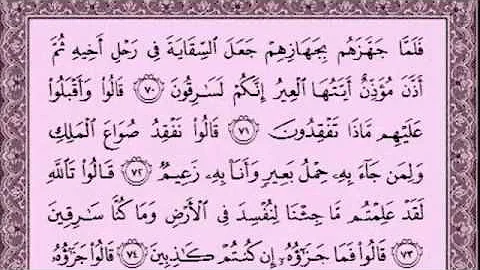 فَلَمَّا جَهَّزَهُم بِجَهَازِهِمْ جَعَلَ ٱلسِّقَايَةَ فِى رَحْلِ أَخِيهِ ثُمَّ
أَذَّنَ مُؤَذِّنٌ أَيَّتُهَا ٱلْعِيرُ إِنَّكُمْ لَسَٰرِقُونَ ٧٠ قَالُوا۟ وَأَقْبَلُوا۟
عَلَيْهِم مَّاذَا تَفْقِدُونَ ٧١ قَالُوا۟ نَفْقِدُ صُوَاعَ ٱلْمَلِكِ
وَلِمَن جَآءَ بِهِۦ حِمْلُ بَعِيرٍ وَأَنَا۠ بِهِۦ زَعِيمٌ ٧٢ قَالُوا۟ تَٱللَّهِ
لَقَدْ عَلِمْتُم مَّا جِئْنَا لِنُفْسِدَ فِى ٱلْأَرْضِ وَمَا كُنَّا سَٰرِقِينَ
٧٣ قَالُوا۟ فَمَا جَزَٰٓؤُهُۥٓ إِن كُنتُمْ كَٰذِبِينَ ٧٤ قَالُوا۟ جَزَٰٓؤُهُۥ